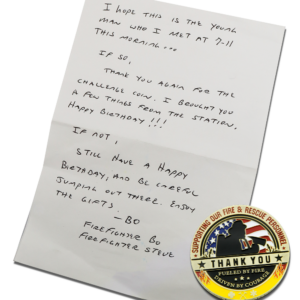 I HOPE THIS IS THE YOUNG
MAN WHO I MET AT 7-11
THIS MORNING...
IF SO,
THANK YOU AGAIN FOR THE
CHALLENGE COIN. I BROUGHT YOU
A FEW THINGS FROM THE STATION.
HAPPY BIRTHDAY!!!
IF NOT,
STILL HAVE A HAPPY
BIRTHDAY, AND BE CAREFUL
JUMPING OUT THERE. ENJOY
THE GIFTS.
- BO
FIREFIGHTER BO
FIREFIGHTER STEVE
SUPPORTING OUR FIRE & RESCUE PERSONNEL
THANK YOU
FUELED BY FIRE
DRIVEN BY COURAGE